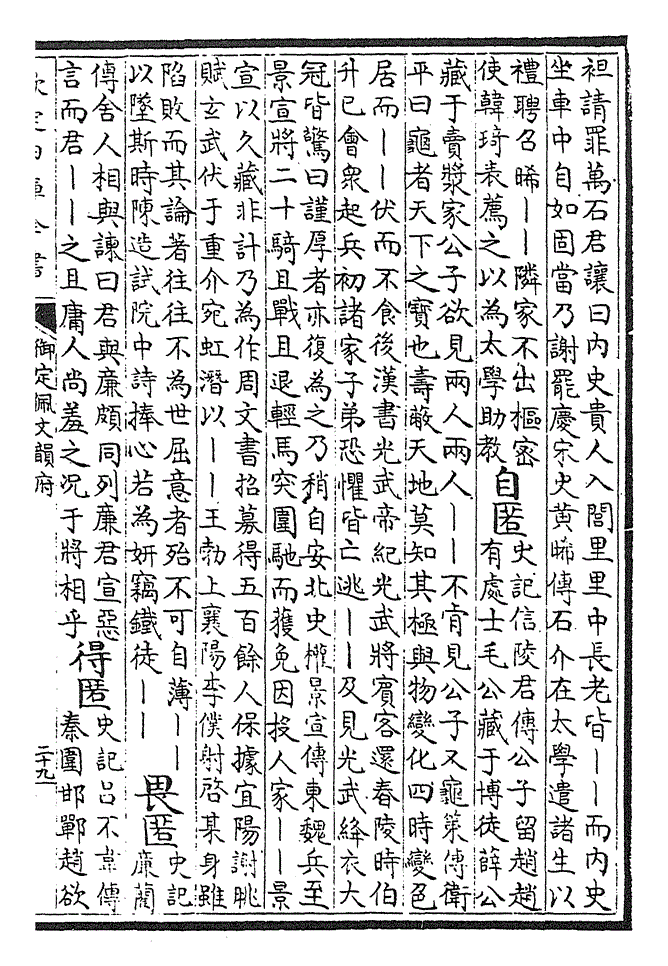 袒請罪萬石君讓曰內史貴人入閭里里中長老皆丨丨而內史
坐車中自如固當乃謝罷慶宋史黃晞傳石介在太學遣諸生以
禮聘召晞丨丨隣家不出樞密
使韓琦表薦之以為太學助教
自匿
史記信陵君傳公子留趙趙
有處士毛公藏于博徒薛公
藏于賣漿家公子欲見兩人兩人丨丨不肯見公子又龜策傳衛
平曰龜者天下之寶也壽蔽天地莫知其極與物變化四時變色
居而丨丨伏而不食後漢書光武帝紀光武將賓客還舂陵時伯
升已會衆起兵初諸家子弟恐懼皆亡逃丨丨及見光武絳衣大
冠皆驚曰謹厚者亦復為之乃稍自安北史權景宣傳東魏兵至
景宣將二十騎且戰且退輕馬突圍馳而獲免因投人家丨丨景
宣以久藏非計乃為作周文書招募得五百餘人保據宜陽謝眺
賦玄武伏于重介宛虹潛以丨丨王勃上襄陽李僕射啓某身雖
陷敗而其論著往往不為世屈意者殆不可自薄丨丨
以墜斯時陳造試院中詩捧心若為妍竊鐵徒丨丨
畏匿
史記
廉藺
傳舍人相與諫曰君與廉頗同列廉君宣惡
言而君丨丨之且庸人尚羞之况于將相乎
得匿
史記吕不韋傳
秦圍邯鄲趙欲
欽定四庫全書
御定佩文韻府
二十九